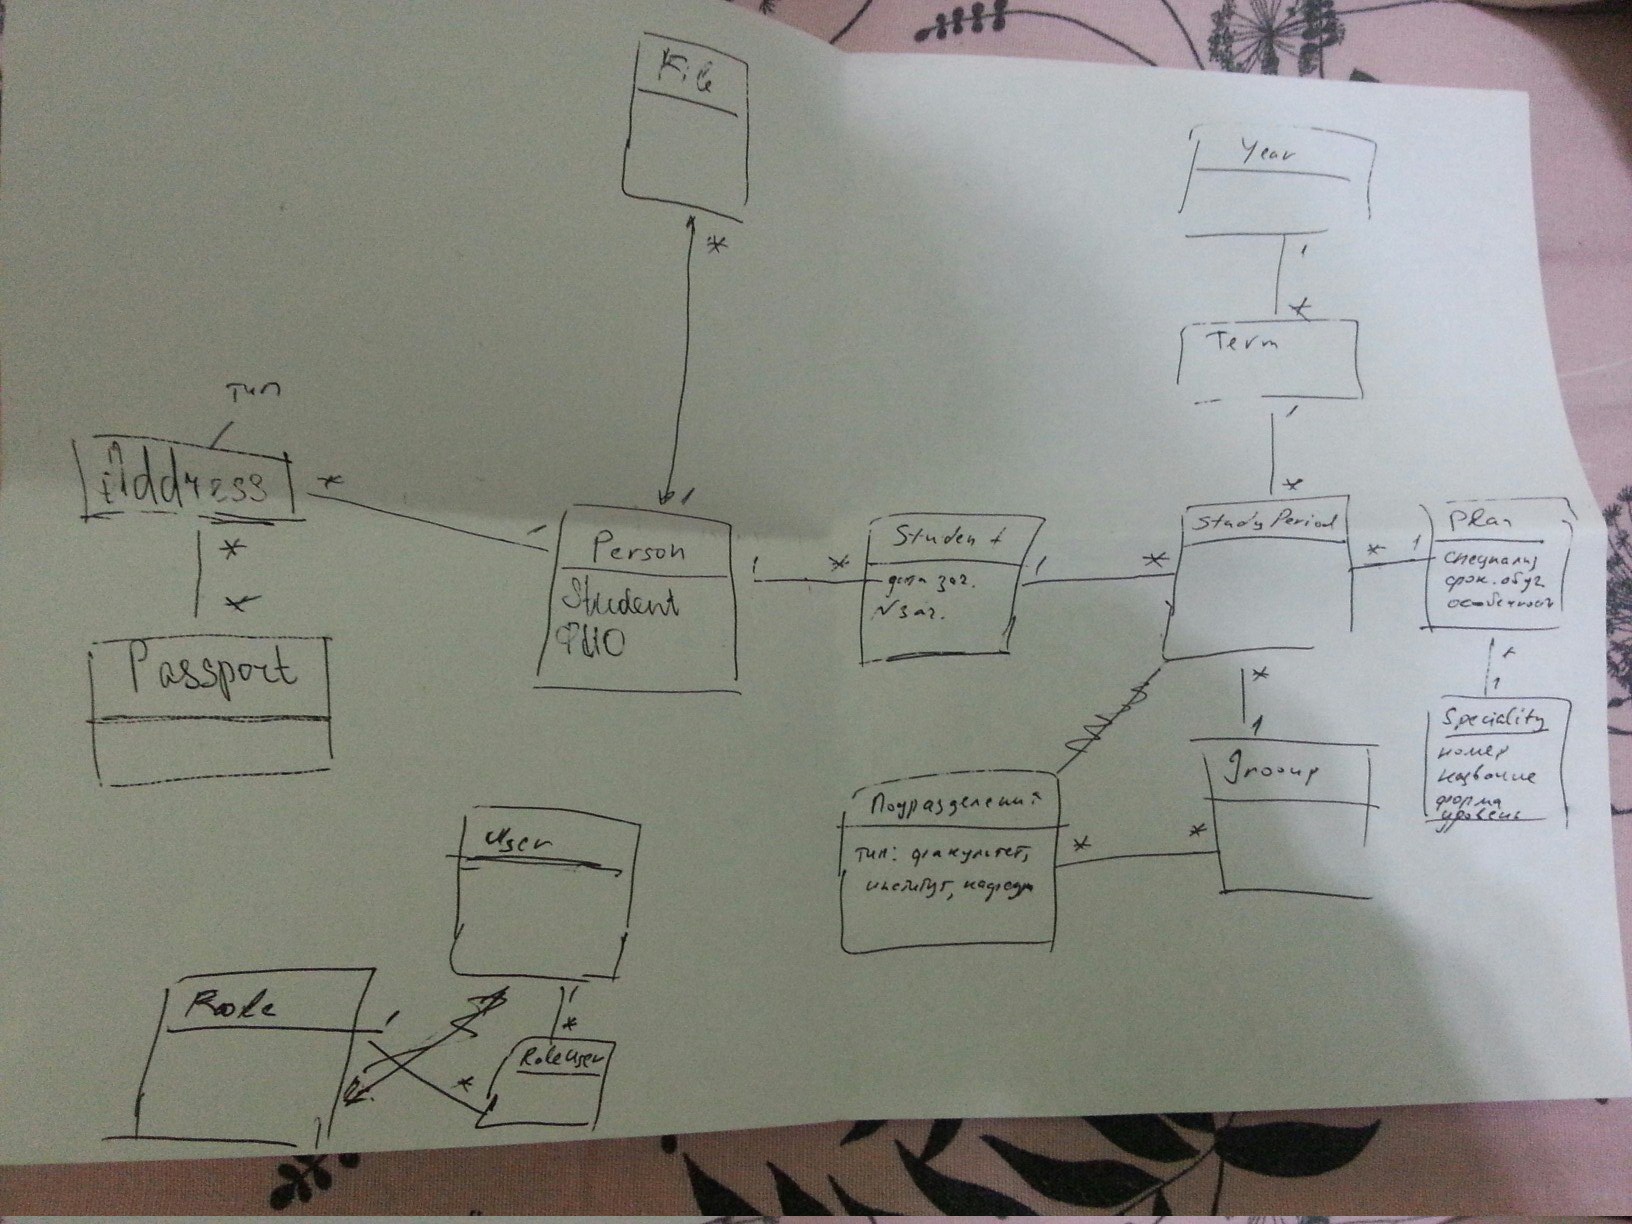 File
*
1
Year
1
*
Term
1
*
тип
Address
*
1
*
*
Passport
Person
Student
ФИО
1
*
Student
дата зач.
№ зач.
1
*
StudyPeriod
*
1
Plan
специализ
срок. обуч
особенност
*
1
Speciality
номер
название
форма
уровень
*
1
Grooup
*
*
Подразделений
тип: факультет,
институт, кафедра
User
1
*
RoleUser
*
1
Role